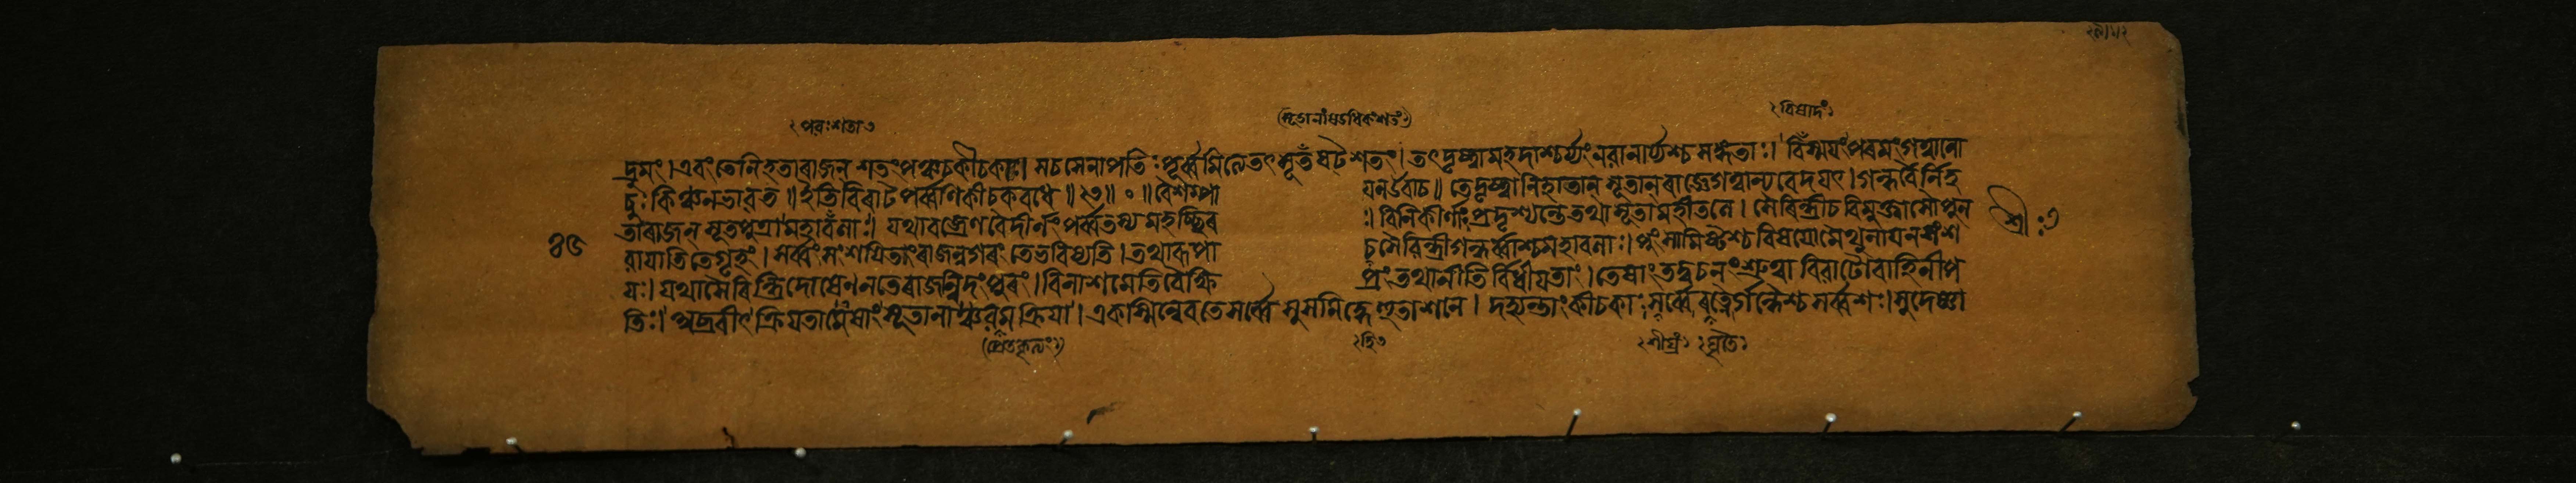 পরঃশতা
(সূতানাং ষডধিকং শতং)
বিষাদং
দ্রুমং। এবং তে নিহতা রাজন্ শতং পঞ্চ চ কীচকাঃ। স চ সেনাপতিঃ পূর্ব্বমিত্যেতৎ সূত ষট শতং। তৎ দৃষ্ট্বা মহদাশ্চর্য্যং নরা নার্য্যশ্চ সঙ্গতাঃ। বিস্ময়ং পরমং গত্বা নো
চুঃ কিঞ্চন ভারত॥ ইতি বিরাট পর্ব্বণি কীচকবধে॥ ॥ ০ ॥ বৈশম্পা য়ন উবাচ॥ তে দৃষ্ট্বা নিহতান্ সূতান্ রাজ্ঞে গত্বা ন্যবেদয়ৎ। গন্ধর্বৈর্নিহ
তা রাজন্ সূতপুত্রা মহাবলাঃ। যথা বজ্রেণ বৈ দীর্ণং পর্ব্বতস্য মহচ্ছির ঃ। বিনিকীর্ণাঃ প্রদৃশ্যন্তে তথা সূতা মহীতলে। সৈরিন্ধ্রী চ বিমুক্তাসৌ পুন
রায়াতি তে গৃহং। সর্ব্বং সংশয়িতং রাজন্নগরং তে ভবিষ্যতি। তথারূপা চ সৈরিন্ধ্রী গন্ধর্ব্বাশ্চ মহাবলাঃ। পুংসামিষ্টশ্চ বিষয়ো মৈথুনায় ন সংশ
য়ঃ। যথা সৈরিন্ধ্রি দোষেণ ন তে রাজন্নিদং পুরং। বিনাশমেতি বৈ ক্ষি প্রং তথা নীতির্বিধীয়তাং। তেষাং তদ্বচনং শ্রুত্বা বিরাটো বাহিনীপ
তিঃ। অব্রবীৎ ক্রিয়তামেষাং সূতানাঞ্চরম ক্রিয়া। একস্মিন্নেব তে সর্ব্বে সুসমিদ্ধে হুতাশনে। দহ্যন্তাং কীচকাঃ সর্ব্বে রত্নৈর্গন্ধৈশ্চ সর্ব্বশঃ। সুদেষ্ণা
৪৬
শ্রীঃ
(প্রেতকৃত্যং)
শীঘ্রং